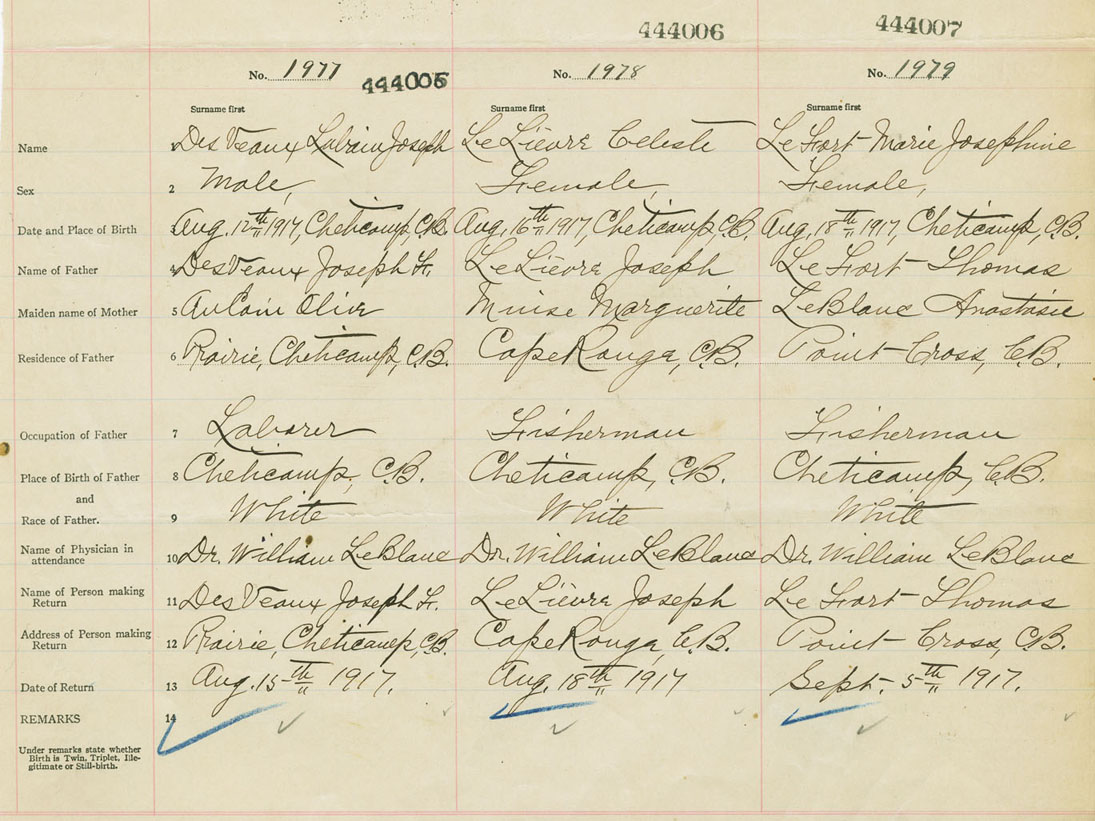 444006 444007
No. 1977 444005 No. 1978 No. 1979
Surname first Surname first Surname first
Name 1 DesVeaux Joseph LeLièvre Celeste LeFort Marie Josephine
Sex 2 Male, Female, Female,
Date and Place of Birth 3 Aug. 12th 1917, Cheticamp, C.B. Aug. 16th 1917, Cheticamp C.B. Aug. 18th 1917, Cheticamp, C.B.
Name of Father 4 DesVeaux Joseph LeLièvre Joseph LeFort Thomas
Maiden name of Mother 5 AuCoin Olive Muise Marguerite LeBlanc Anastasie
Residence of Father 6 Prairie, Cheticamp, C.B. Cape Rouge, C.B. Point Cross, C.B.
Occupation of Father 7 Laborer Fisherman Fisherman
Place of Birth of Father 8 Cheticamp, C.B. Cheticamp, C.B. Cheticamp, C.B.
and
Race of Father. 9 White White White
Name of Physician in
attendance 10 Dr. William LeBlanc Dr. William LeBlanc Dr. William LeBlanc
Name of Person making
Return 11 DesVeaux Joseph LeLièvre Joseph LeFort Thomas
Address of Person making
Return 12 Prairie, Cheticamp, C.B. Cape Rouge, C.B. Point Cross, C.B.
Date of Return 13 Aug. 15th 1917. Aug. 18th 1917 Sept. 5th 1917.
REMARKS 14
Under remarks state whether
Birth is Twin, Triplet, Ille-
gitimate or Still-birth.